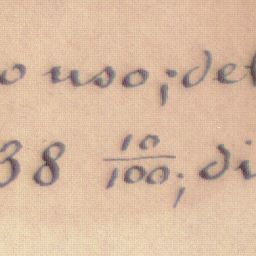 o uso; del
38 10/100; di